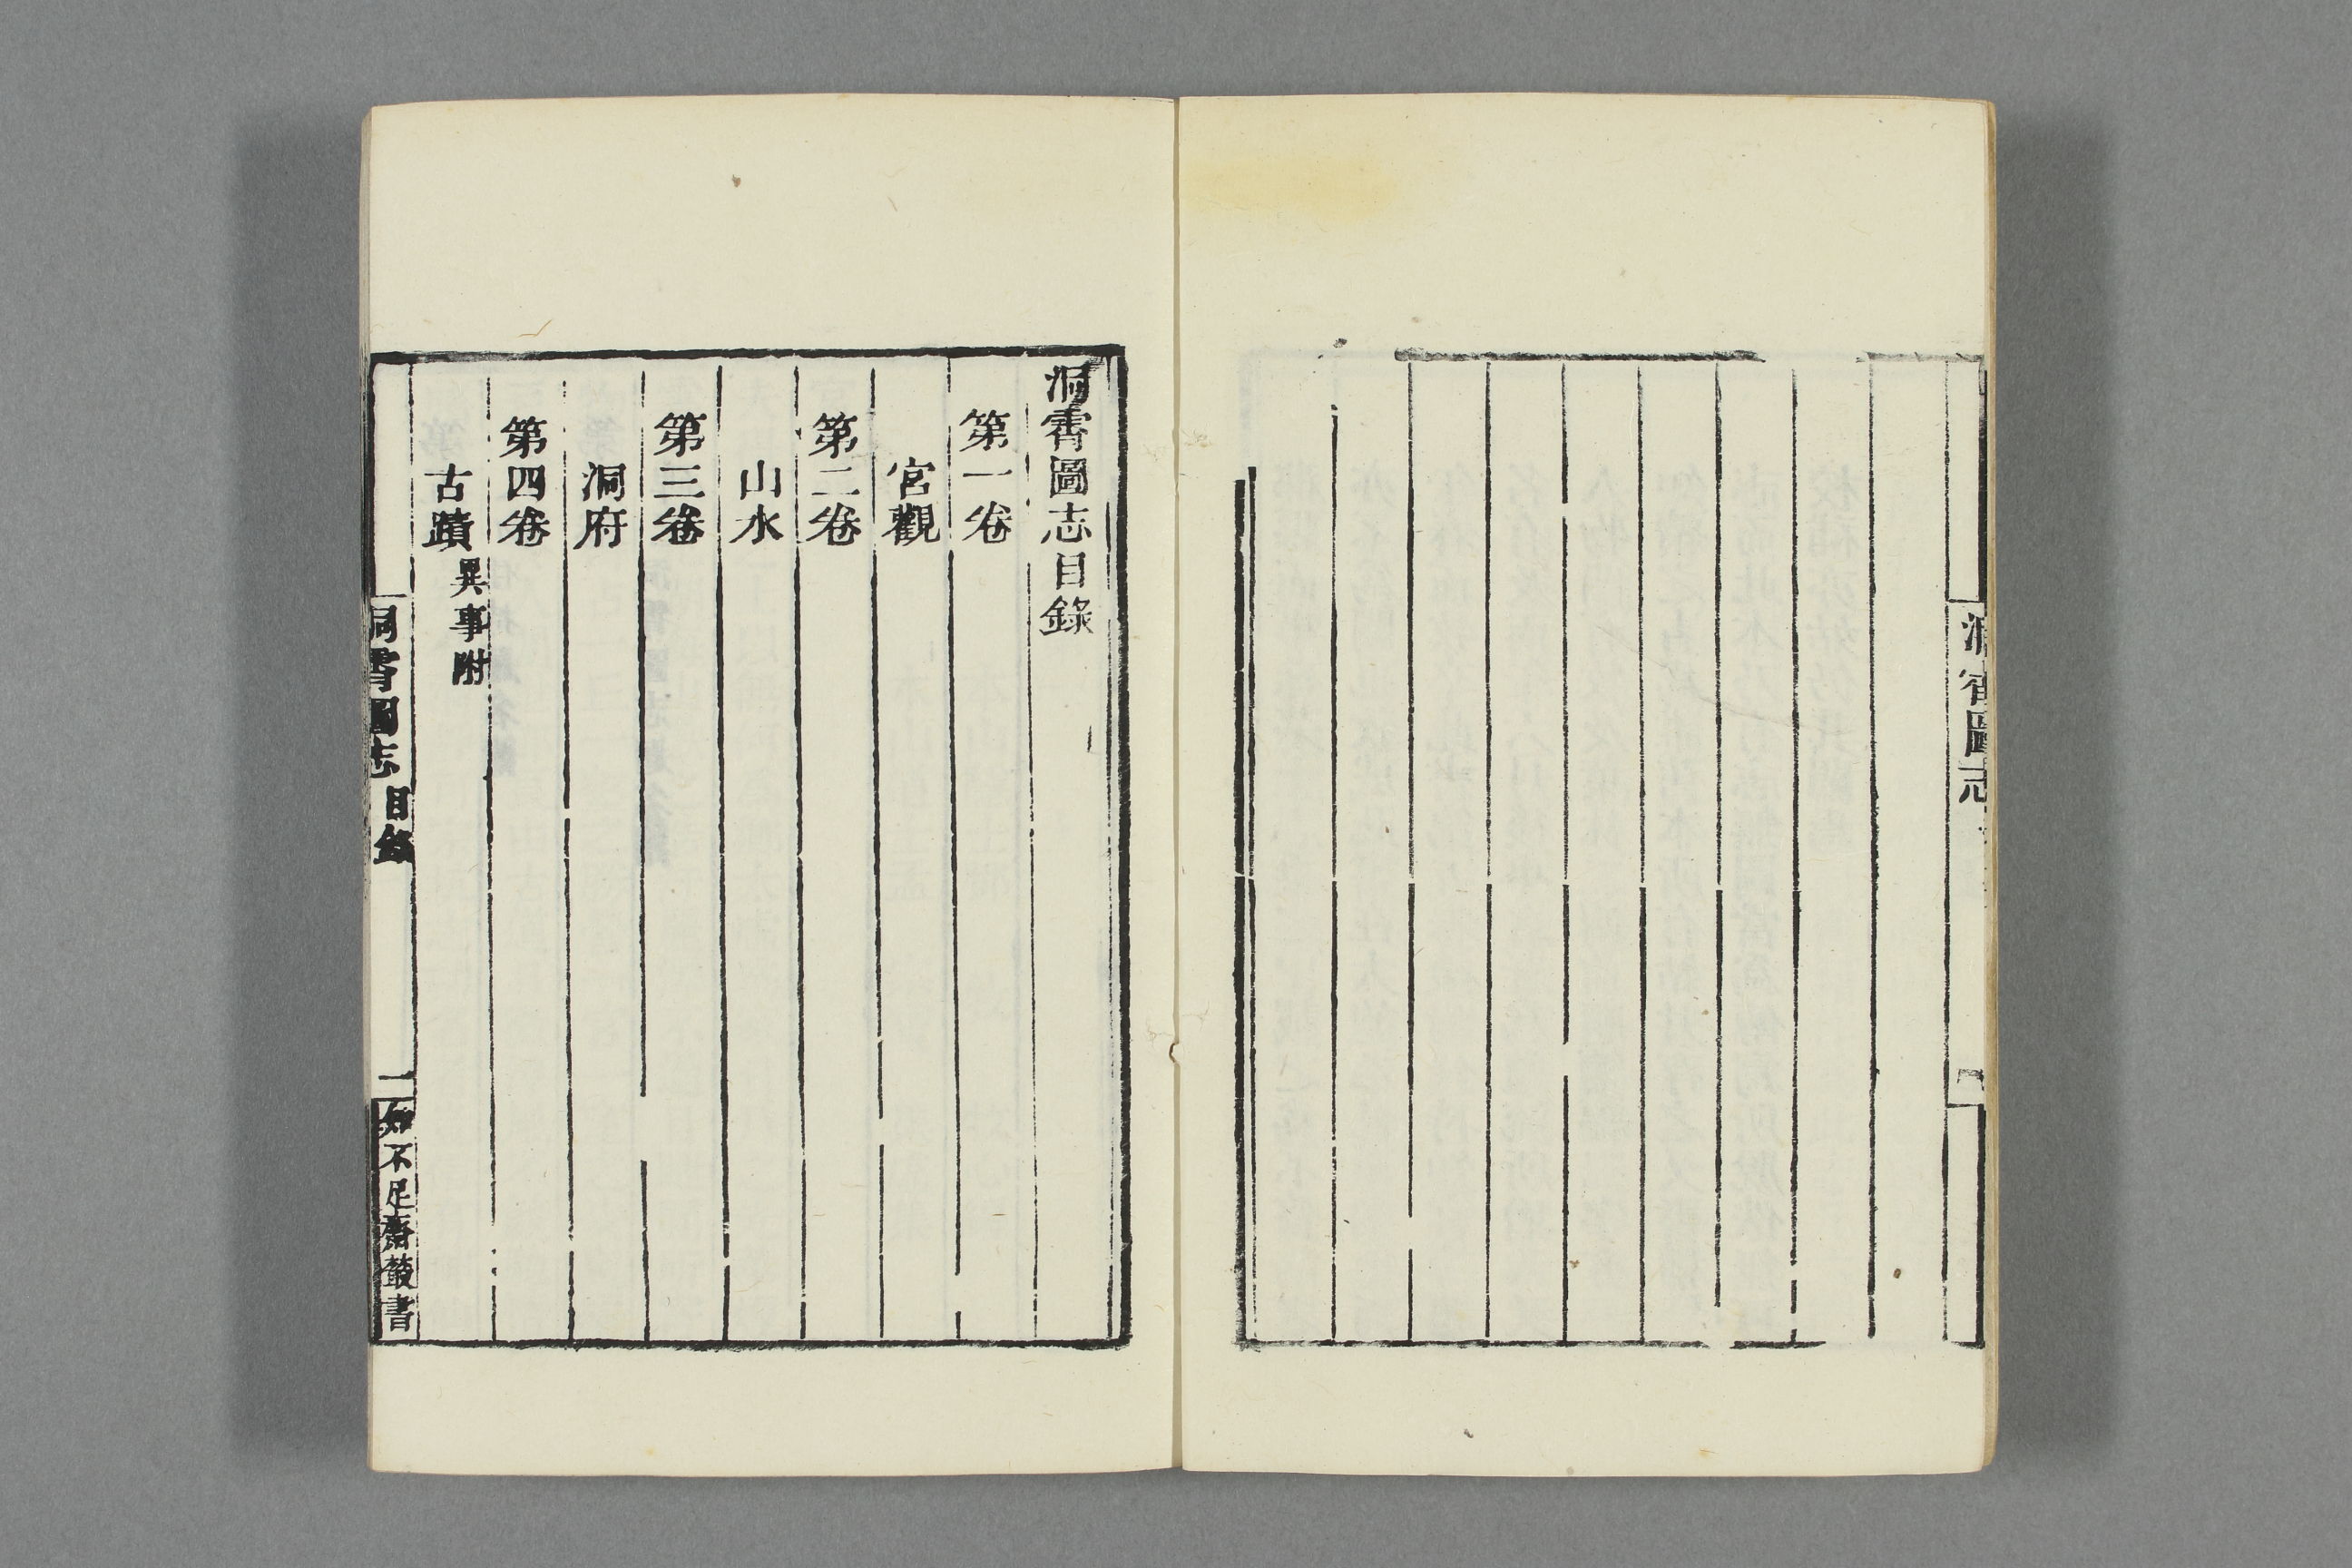 洞霄圖志
洞霄圖志目錄
第一卷
宮觀
第二卷
山水
第三卷
洞府
第四卷
古蹟異事附
洞霄圖志 目錄 一 知不足齋叢書